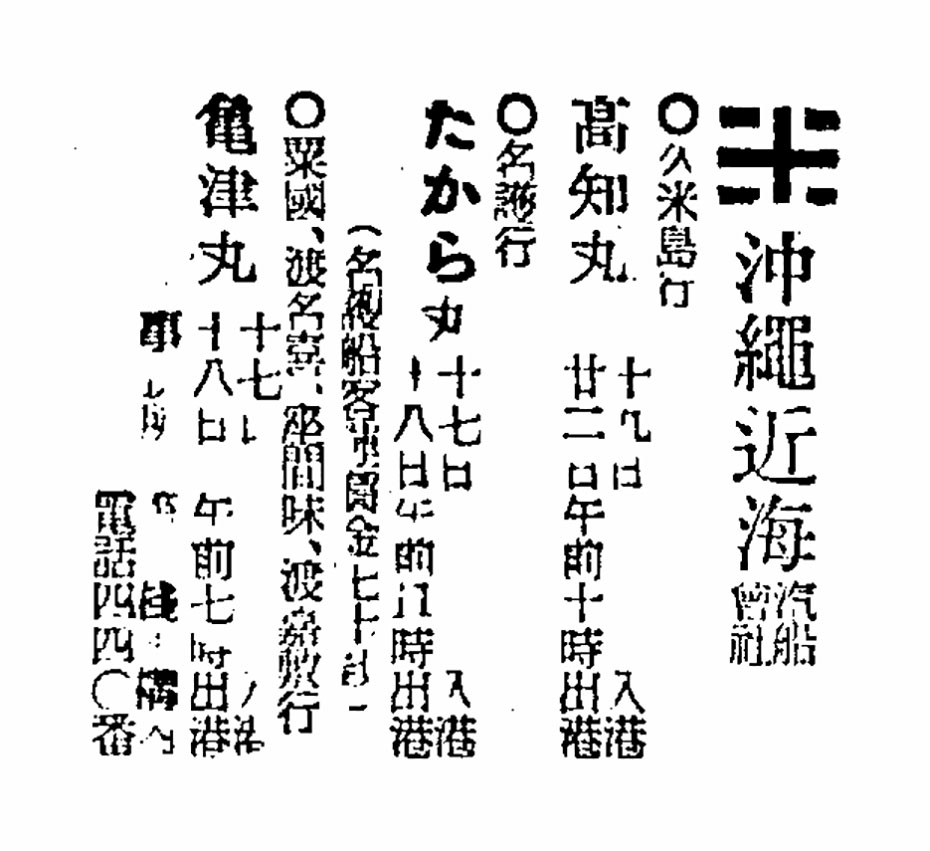 沖繩近海汽船會社
○久米島行
高知丸
十九日入港
廿二日午前十時出港
○名護行
たから丸
十七日入港
十八日午前八時出港
(名護船客車賃金七十
○粟國、渡名喜、座間味、渡嘉敷行
亀津丸
十七日入港
十八日午前七時出港
電話四四〇番